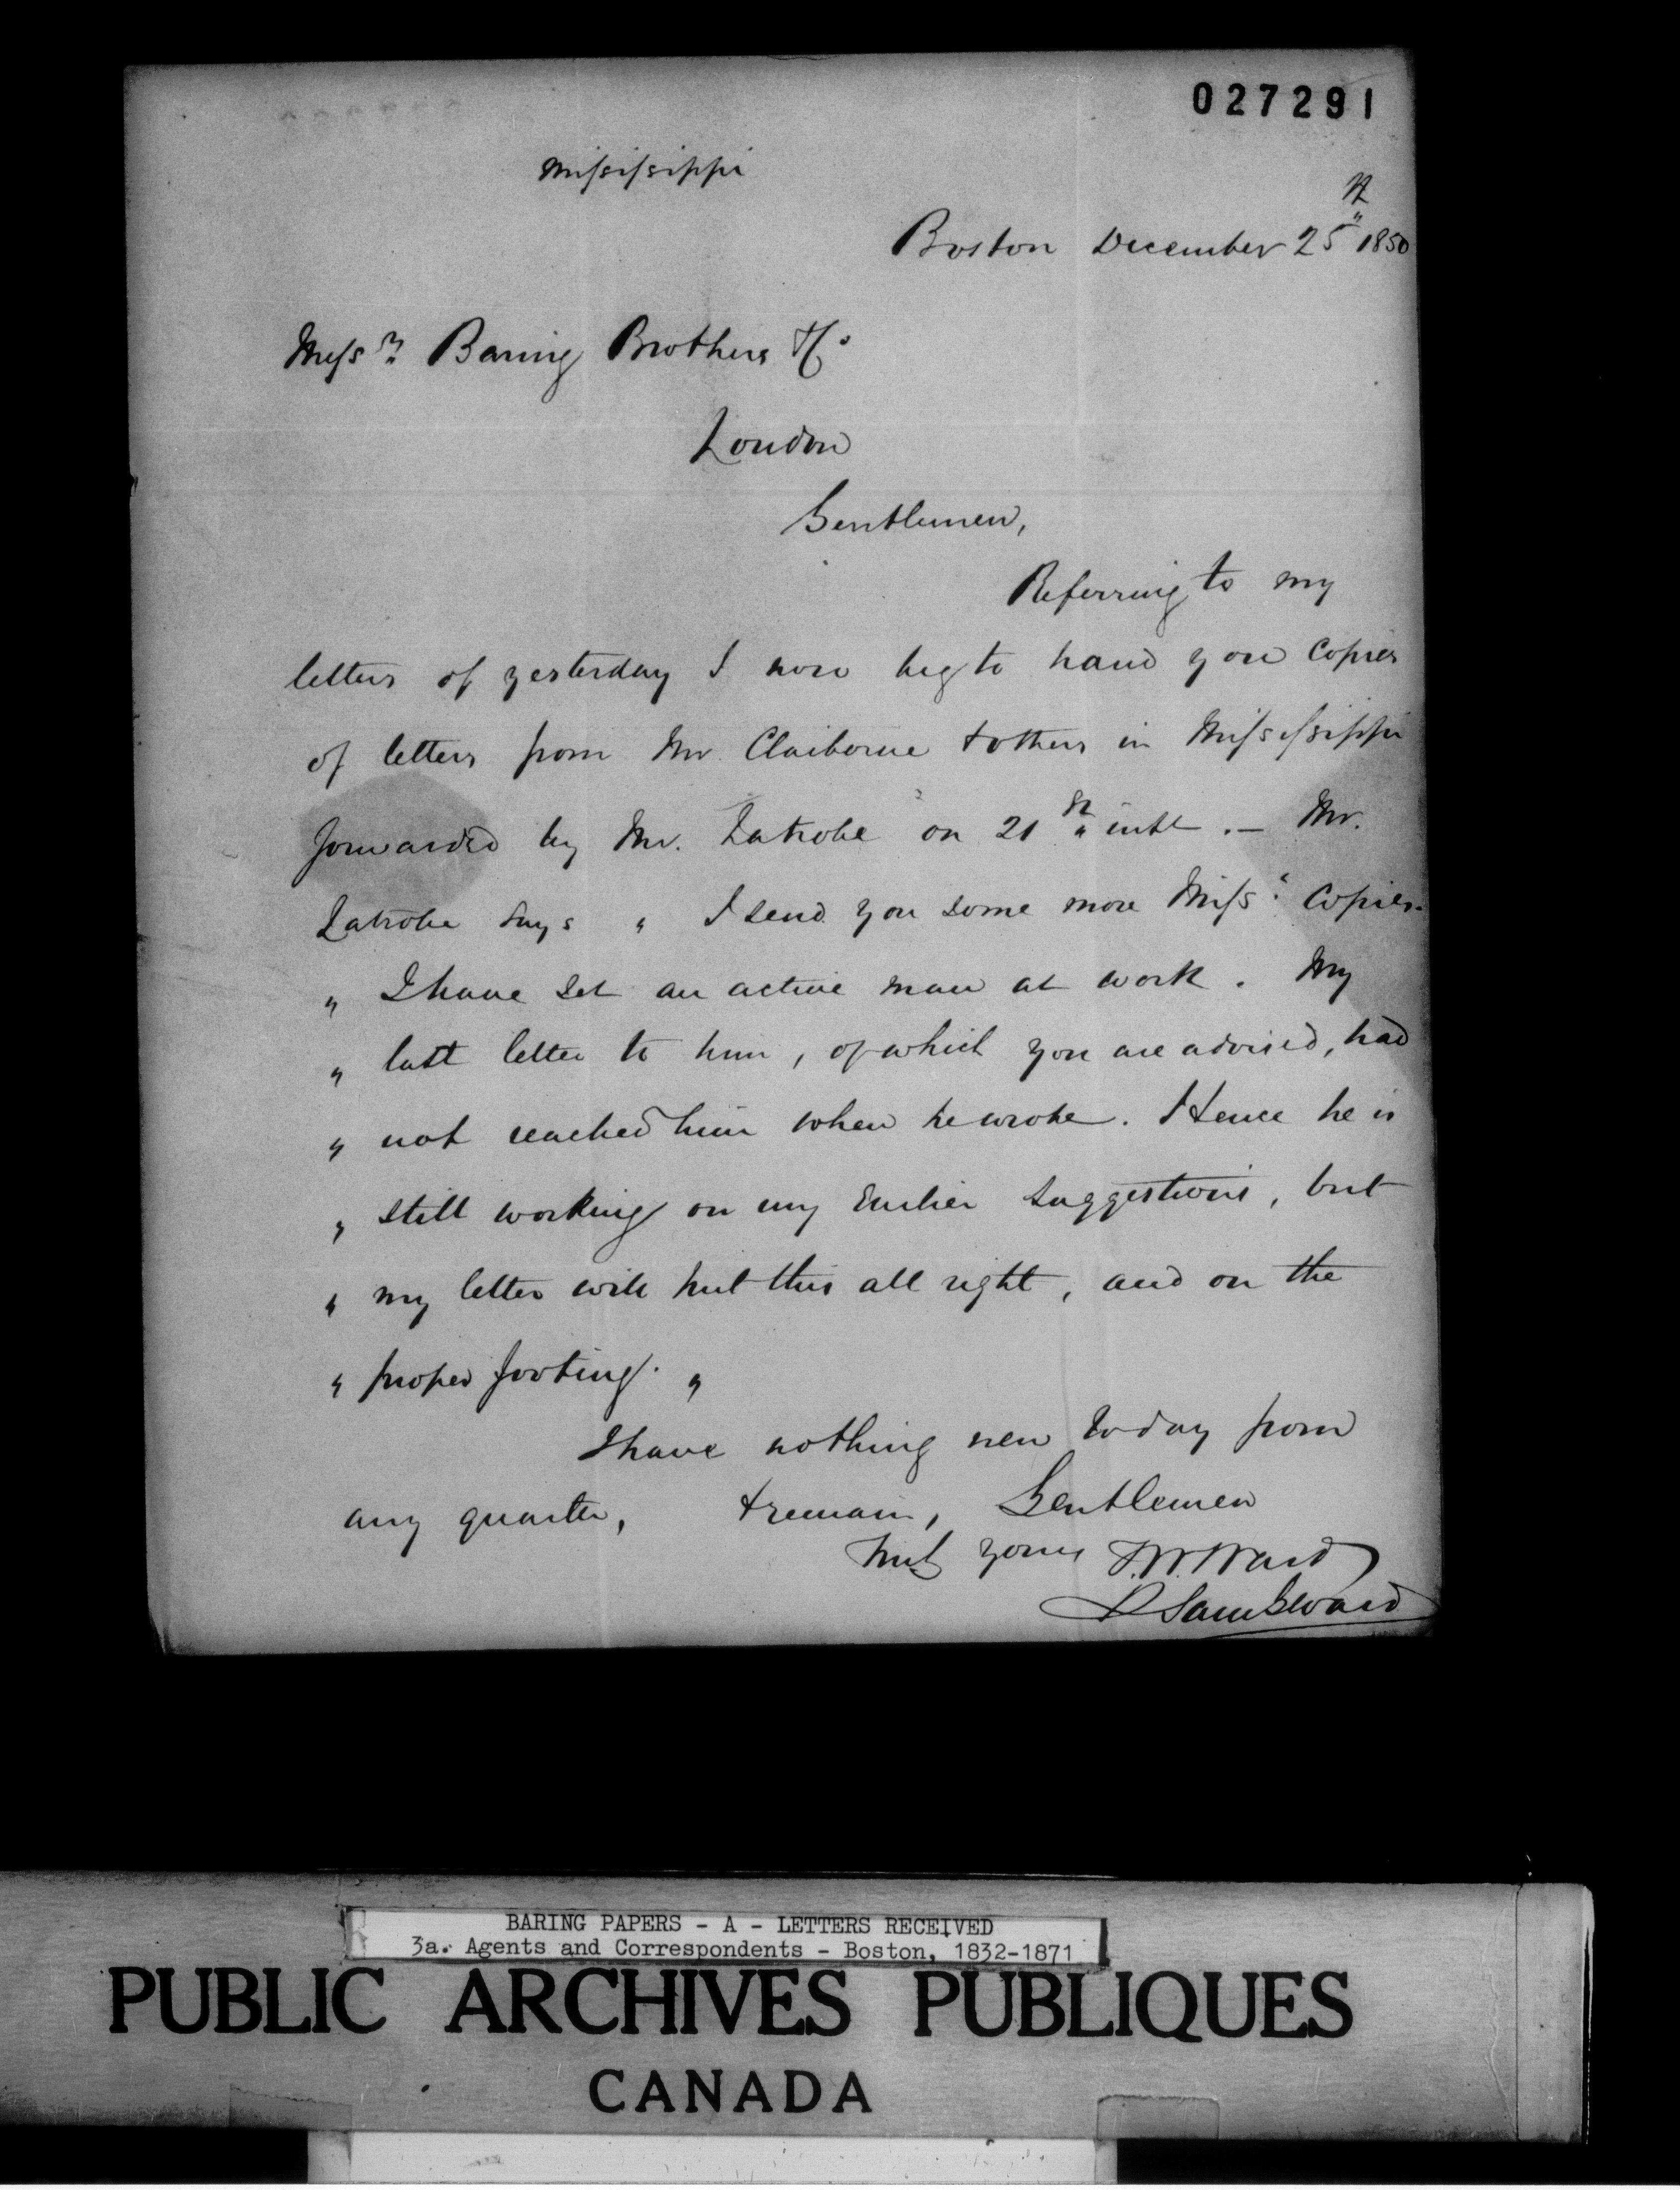 027291
Mississippi
Boston December 25th 1850
Messrs Baring Brothers & Co
London
Gentlemen,
Referring to my
letters of yesterday I now beg to hand you Copies
of letters from Mr Claiborne & others in Mississippi
forwarded by Mr. Latrobe on 21st inst. — Mr.
Latrobe Says " I send you some more Miss: Copies.
" I have set an active man at work. My
" last letter to him, of which you are advised, had
" not reached him when he wrote. Hence he is
" still working on my Earlier Suggestions, but
" my letter will put this all right, and on the
" proper footing. "
I have nothing new today from
any quarter, & remain, Gentlemen
Truly yours T.W. Ward
P Sam G Ward
BARING PAPERS - A - LETTERS RECEIVED
3a. Agents and Correspondents - Boston, 1832-1871
PUBLIC ARCHIVES PUBLIQUES
CANADA